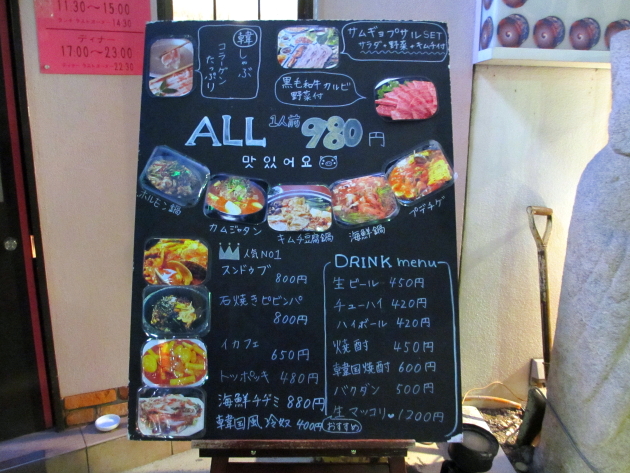 11.30〜15:00
ディナー
17:00〜23:00
韓しゃぶ
コラーゲン
たっぷり
サムギョプサルSET
サラダ・野菜・キムチ付
黒も和牛カルビ
野菜付
ALL 1人前 980円
맛있어요
ホルモン鍋
カムジャタン
キムチ豆腐鍋
海鮮鍋
プデチゲ
人気NO1
スンドゥブ
800円
石焼きビビンパ
800円
イカフェ
650円
トッポッキ 480円
海鮮チヂミ 880円
韓国風冷奴 400円
DRINK menu
生ビール 450円
チューハイ 420円
ハイボール 420円
焼酎 450円
韓国焼酎 600円
バクダン 500円
生マッコリ 1200円
おすすめ